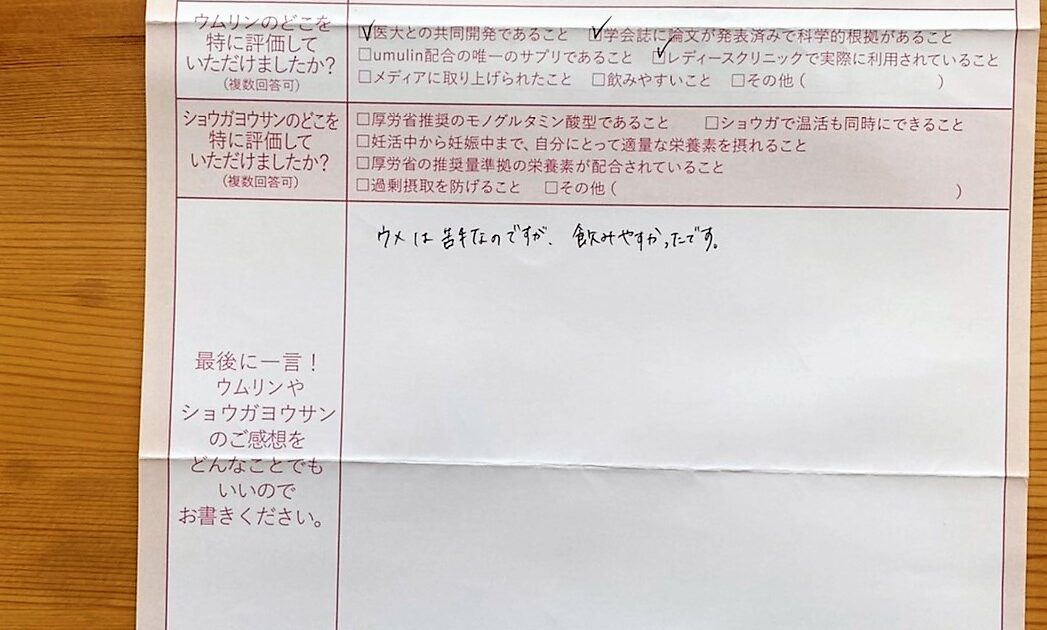 ウムリンのどこを
特に評価して
いただけましたか?
(複数回答可)
☑医大との共同開発であること ☑学会誌に論文が発表済みで科学的根拠があること
□umulin配合の唯一のサプリであること ☑レディースクリニックで実際に利用されていること
□メディアに取り上げられたこと □飲みやすいこと □その他( )
ショウガヨウサンのどこを
特に評価して
いただけましたか?
(複数回答可)
□厚労省推奨のモノグルタミン酸型であること □ショウガで温活も同時にできること
□妊活中から妊娠中まで、自分にとって適量な栄養素を摂れること
□厚労省の推奨量準拠の栄養素が配合されていること
□過剰摂取を防げること □その他( )
ウメは苦手なのですが、飲みやすかったです。
最後に一言!
ウムリンや
ショウガヨウサン
のご感想を
どんなことでも
いいので
お書きください。